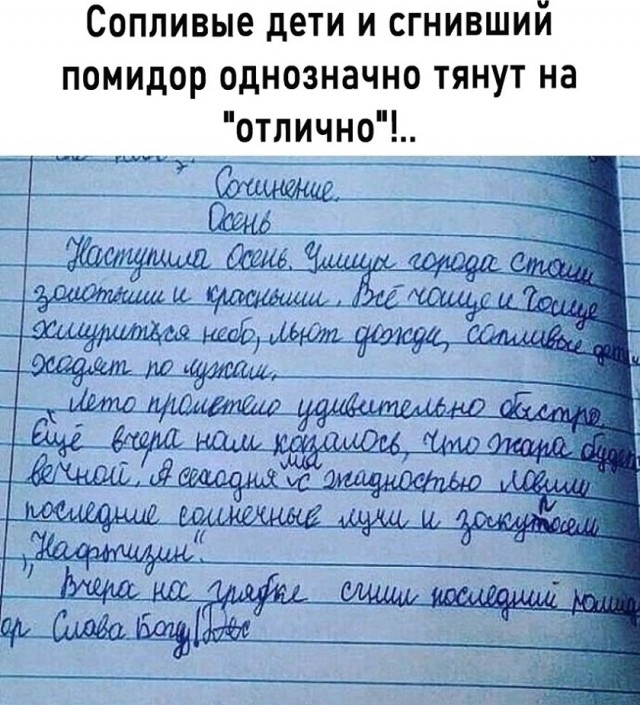 Сопливые дети и сгнивший
помидор однозначно тянут на
"отлично"!..
Сочинение.
Осень
Наступила Осень. Улицы города стали
золотыми и красными. Всё чаще и
хмуриться небо, льют дожди, сопливые дети
ходят по лужам.
Лето пролетело удивительно быстро.
Ещё вчера нам казалось, что жара будет
вечной. А сегодня мы с жадностью ловим
последние солнечные лучи и
"Нафтизин".
Вчера на грядке сгнил последний помид
ор Слава Богу!